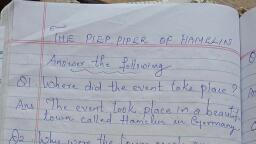 THE PIEP PIPER OF HAMELIN
Answer the following
Q1 Where did the event take place?
Ans The event took place in a beautif
town called Hamelin in Germany.
Q2 Why were the town people